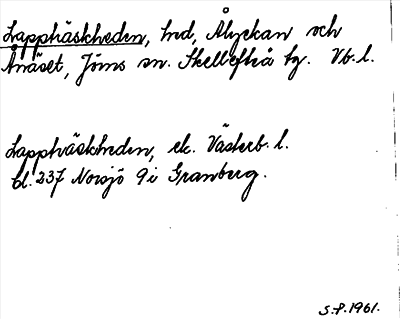 Lapphäskheden, hed, Ålyckan och
Ånäset, Jörns sn. Skellefteå tg. Vb. l.
Lapphäskheden, ek. Västerb. l.
bl. 237 Norsjö 9i Granberg.
S.P. 1961.